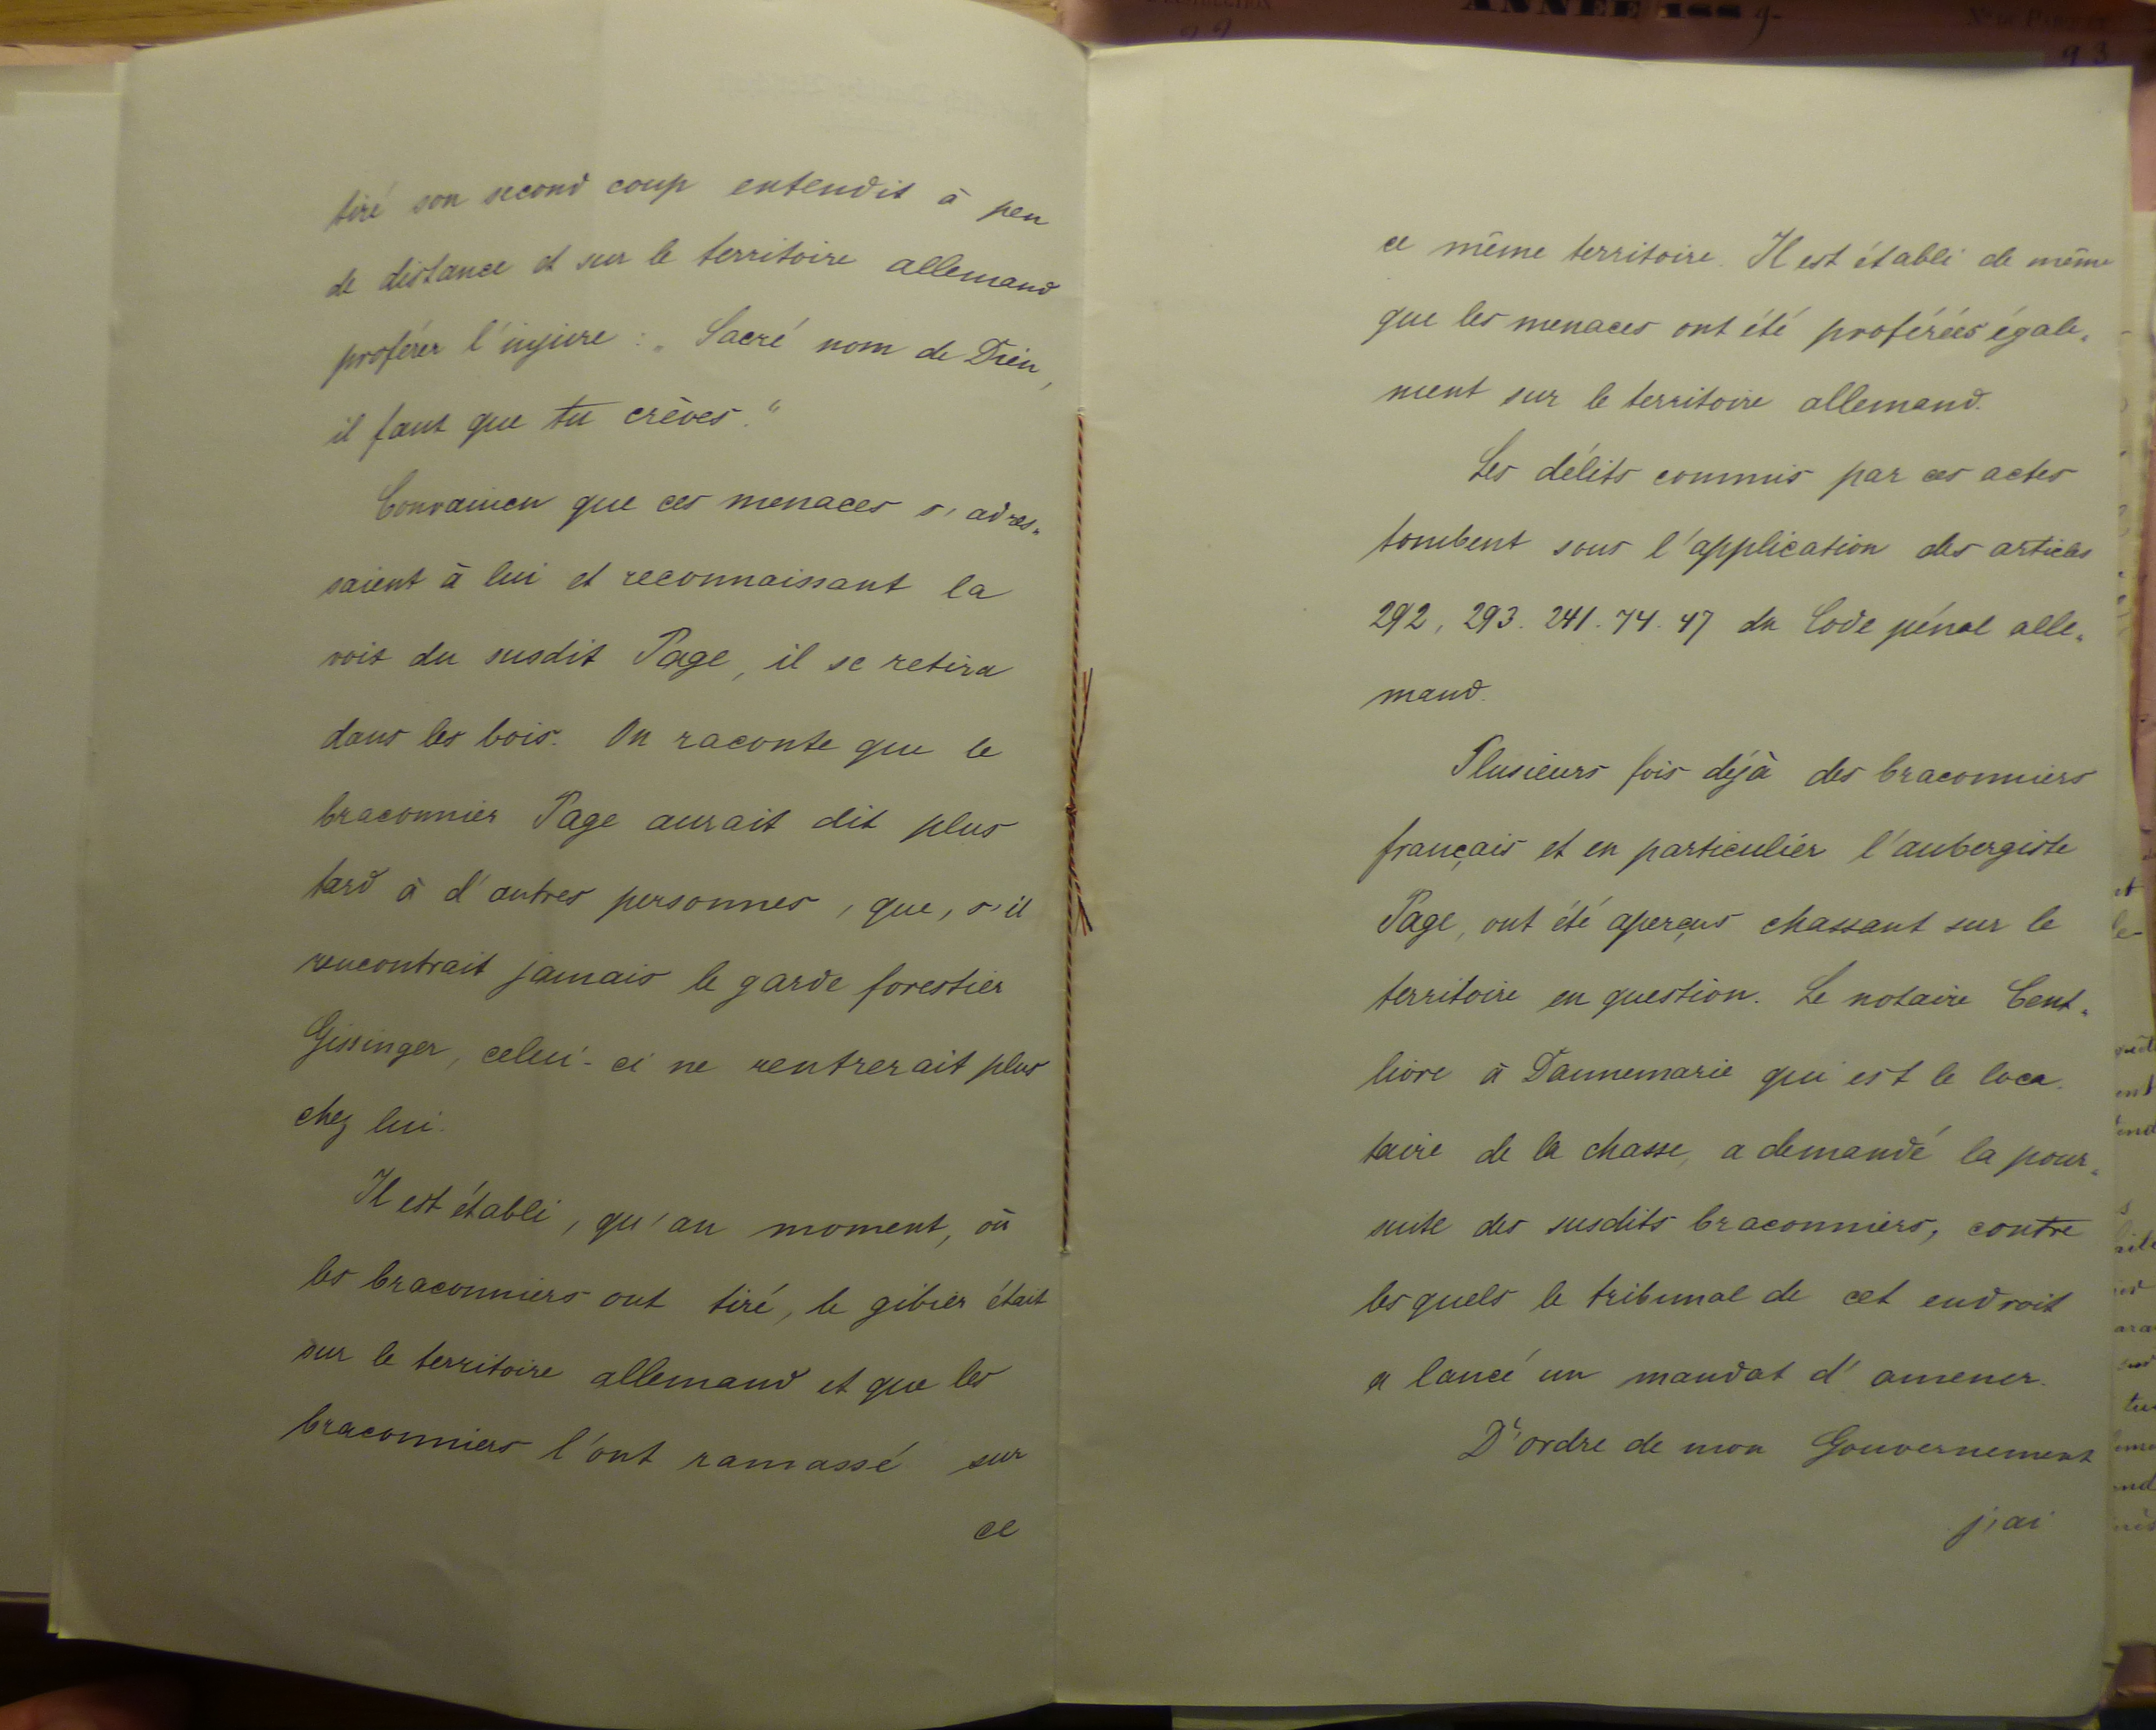 ANNÉE 1889-
93
tiré son second coup entendit à peu
de distance et sur le territoire allemand
proférer l'injure : „ Sacré nom de Dieu,
il faut que tu crèves."
Convaincu que ces menaces s'adres-
saient à lui et reconnaissant la
voix du susdit Page, il se retira
dans les bois. On raconte que le
braconnier Page aurait dit plus
tard à d'autres personnes, que, s'il
rencontrait jamais le garde forestier
Gissinger, celui-ci ne rentrerait plus
chez lui.
Il est établi, qu'au moment, où
les braconniers ont tiré, le gibier était
sur le territoire allemand et que les
braconniers l'ont ramassé sur
ce
ce même territoire. Il est établi de même
que les menaces ont été proférées égale-
ment sur le territoire allemand.
Les délits commis par ces actes
tombent sous l'application des articles
292, 293. 241. 74. 47 du Code pénal alle-
mand.
Plusieurs fois déjà des braconniers
français et en particulier l'aubergiste
Page, ont été aperçus chassant sur le
territoire en question. Le notaire Cent-
livre à Dannemarie qui est le loca-
taire de la chasse, a demandé la pour-
suite des susdits braconniers, contre
lesquels le tribunal de cet endroit
a lancé un mandat d'amener.
D'ordre de mon Gouvernement
j'ai